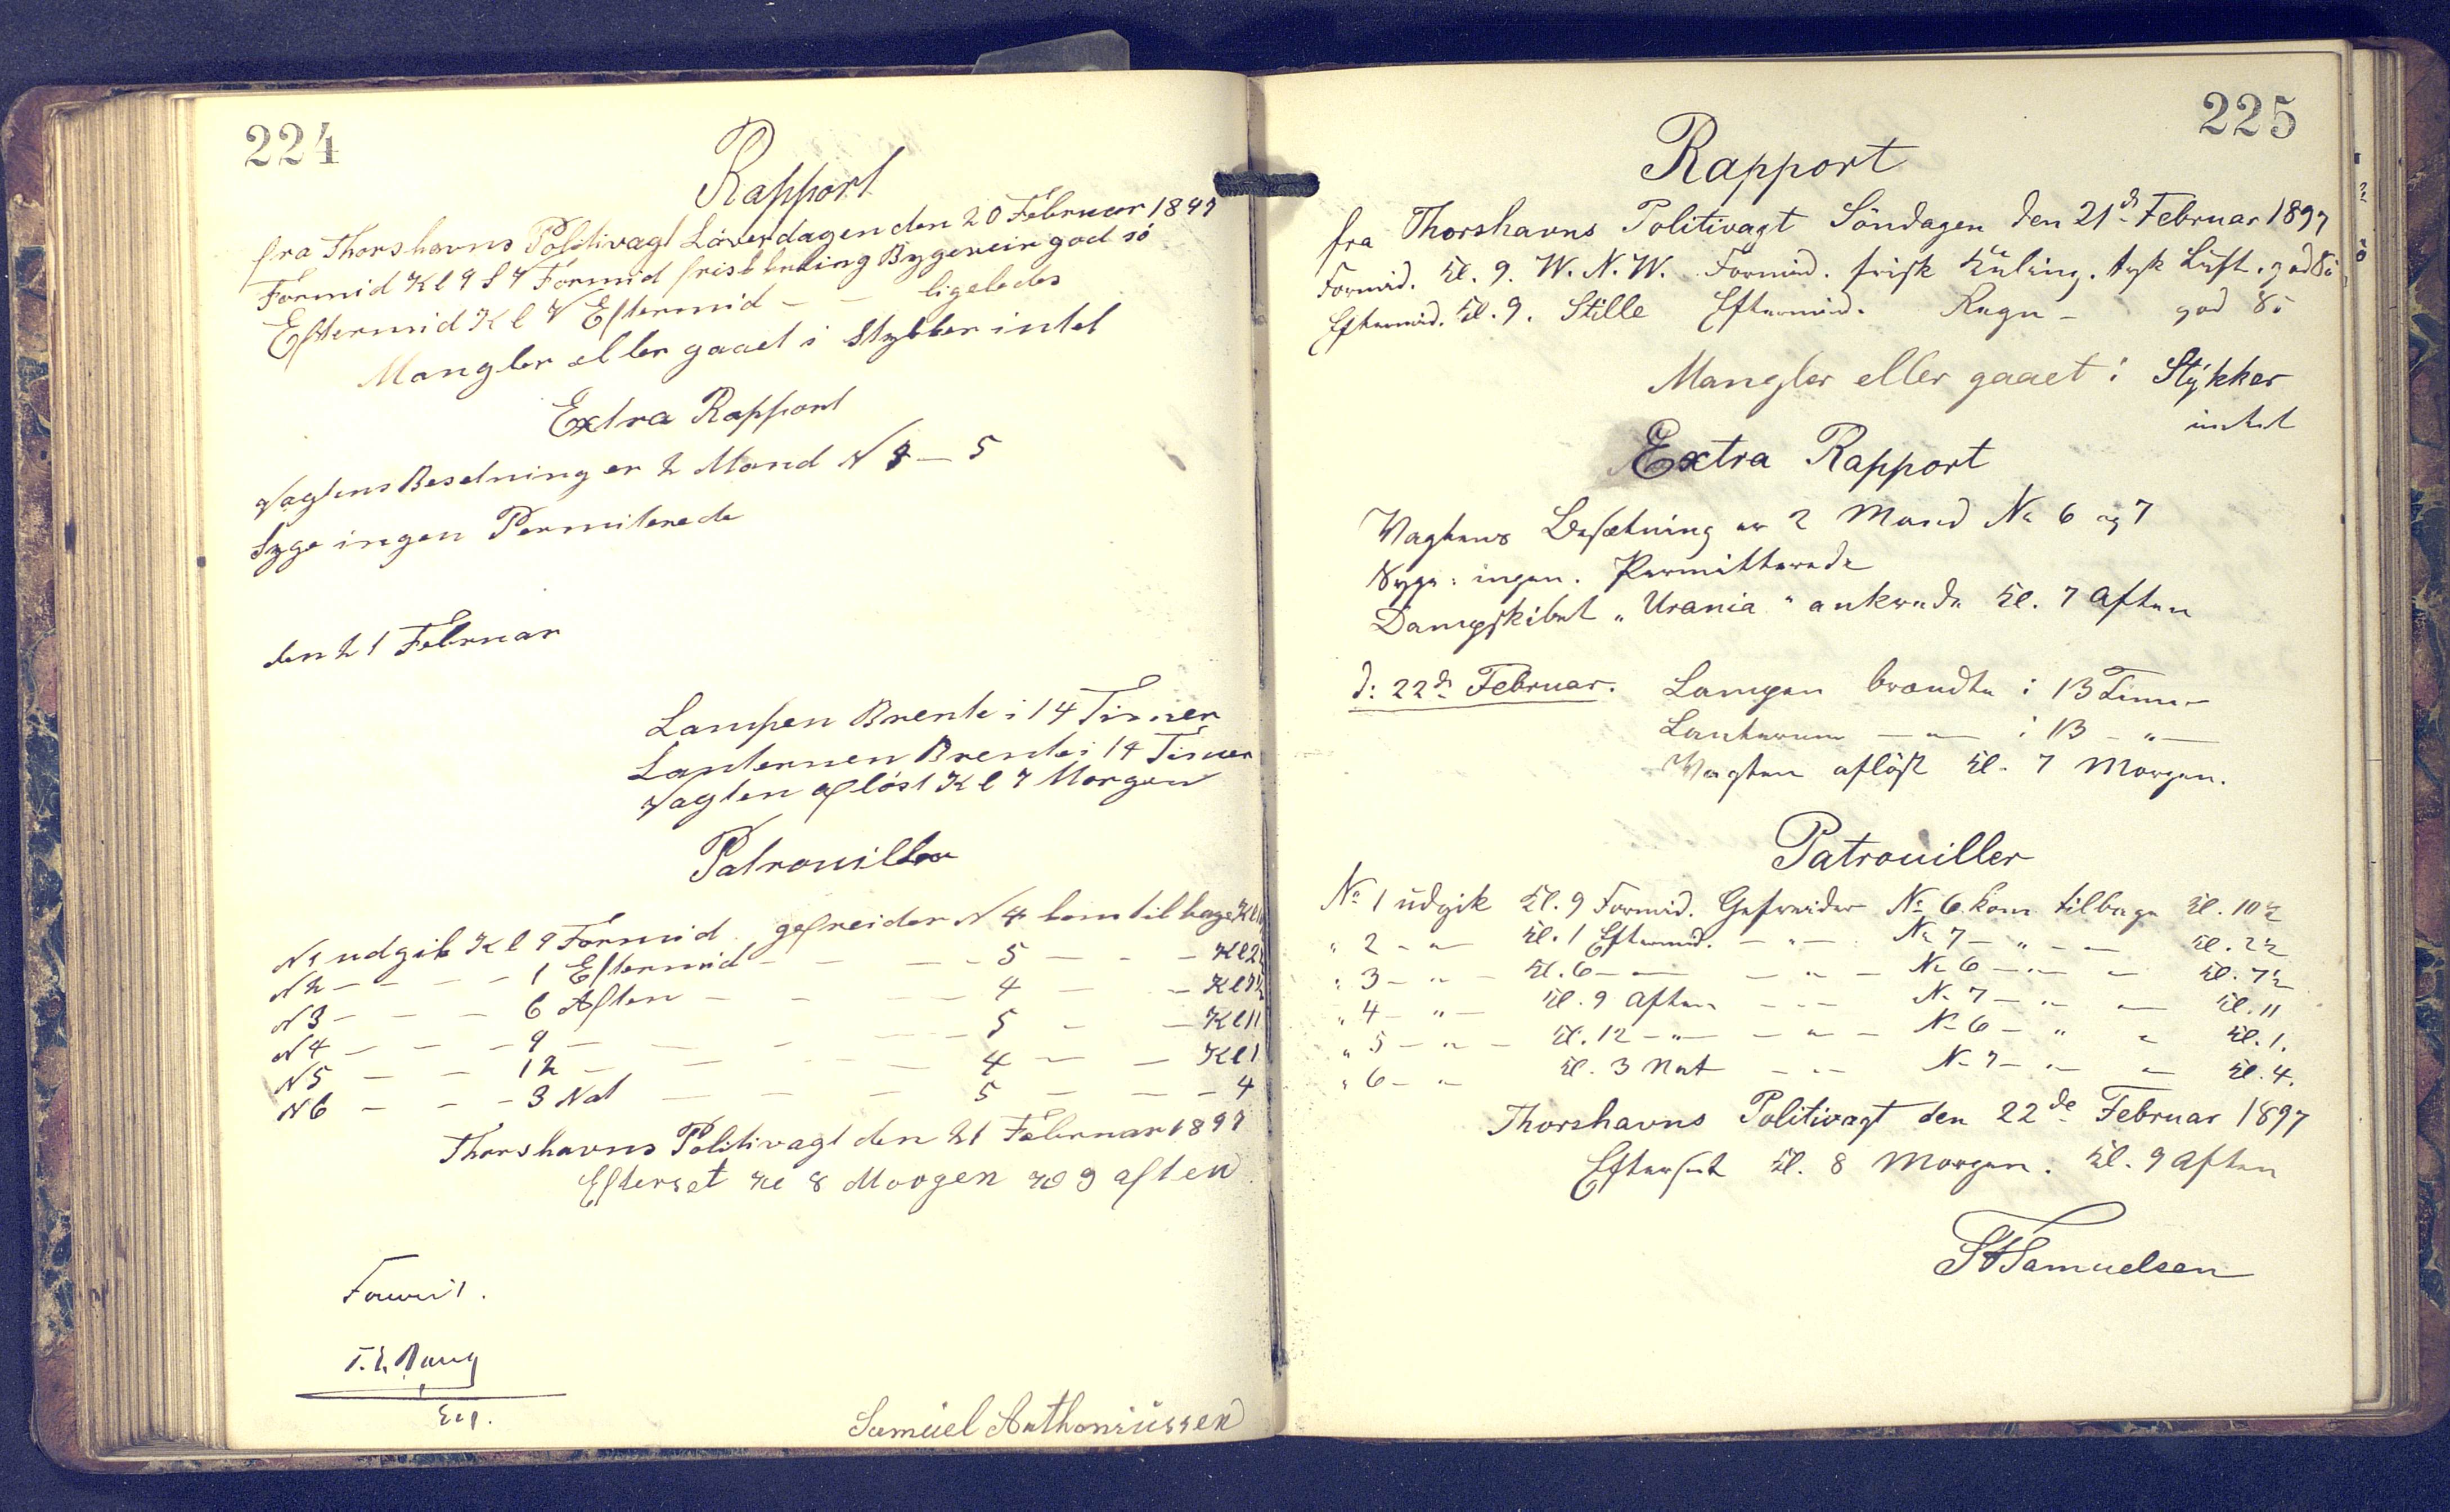 224
Rapport
fra Thorshavns Politivagt Löverdagen den 20 Februar 1897
Formid Kl 9 S V Formid frisk kuling Bygeveir god sö
Eftermid Kl V Eftermid - - ligeledes
Mangler eller gaaet i Stykker intet
Extra Rapport
Vagtens Besetning er 2 Mand N 4 — 5
Syge ingen Permiterede
den 21 Februar
Lampen Brente i 14 Timer
Lanternen Brente i 14 Timer
Vagten aflöst Kl 7 Morgen
Patrouiller
N1 udgik Kl 9 Formid gefreider N 4 kom tilbage Kl
N2 — - - - 1 Eftermid - - - - 5 - - - Kl 2½
N3 - - - 6 Aften - - - - 4 - - Kl 7½
N4 — - - - 9 - - - - 5 - - Kl 11
N5 - - 12 - - - - 4 - - Kl 1
N6 - - - 3 Nat - - - 5 - - - 4
Thorshavns Politivagt den 21 Februar 1897
Efterset Kl 8 Morgen Kl 9 aften
Samuel Anthoniussen
225
Rapport
fra Thorshavns Politivagt Söndagen den 21d Februar 1897
Formid. Kl. 9. W. N. W. Formid. frisk Kuling. tyk Luft. god Sö
Eftermid. Kl. 9. Stille Eftermid. Regn - god Sö
Mangler eller gaaet i Stykker
intet
Extra Rapport
Vagtens Besætning er 2 Mand No 6 og 7
Syge: ingen. Permitterede
Dampskibet „Urania" ankrede Kl. 7 Aften
d: 22d Februar. Lampen brændte i 13 Timer
Lanternen — " — i 13 - " —
Vagten aflöst Kl. 7 Morgen.
Patrouiller
No 1 udgik Kl. 9 Formid. Gefreider No 6 kom tilbage Kl. 10½
" 2 - " — Kl. 1 Eftermid. - " — No 7 — " - — Kl. 2½
" 3 - " - Kl. 6 - — - " - No 6 — " - Kl. 7½
" 4 - " - Kl. 9 Aften - - - No 7 — " — Kl. 11
" 5 - " - Kl. 12 - " — - " - No 6 - " " Kl. 1.
" 6 - " Kl. 3 Nat - " - No 7 - " - Kl. 4.
Thorshavns Politivagt den 22de Februar 1897
Efterset Kl. 8 Morgen. Kl. 9 Aften
Samuelsen